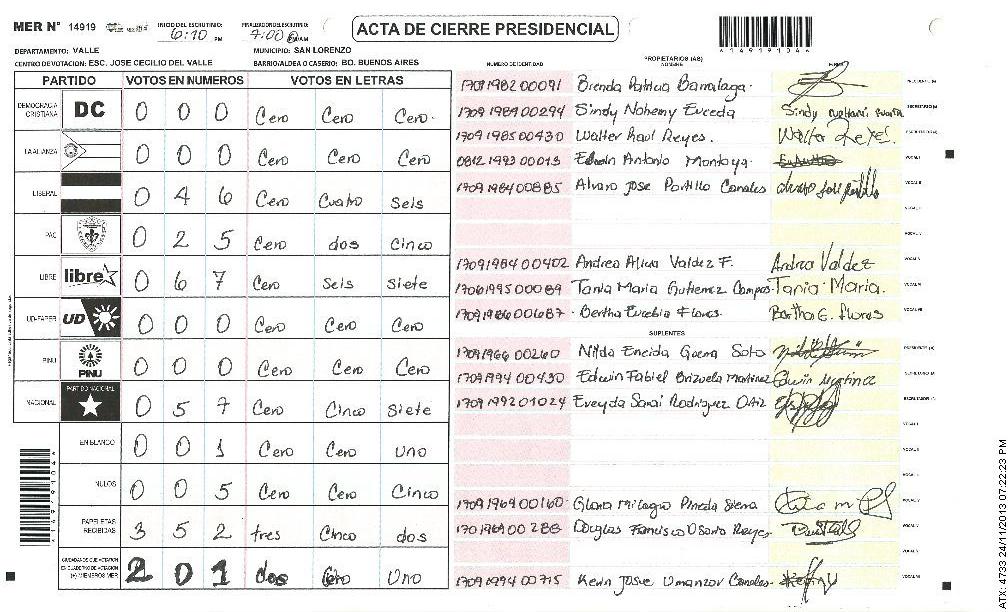 MER N° 14919 INICIO DEL ESCRUTINIO: 6:10 PM FINALIZACION DEL ESCRUTINIO: 7:00 PM/AM ACTA DE CIERRE PRESIDENCIAL
DEPARTAMENTO: VALLE MUNICIPIO: SAN LORENZO
CENTRO DE VOTACION: ESC. JOSE CECILIO DEL VALLE BARRIO/ALDEA O CASERIO: BO. BUENOS AIRES
PARTIDO VOTOS EN NUMEROS VOTOS EN LETRAS
DEMOCRACIA CRISTIANA DC 0 0 0 Cero Cero Cero
LA ALIANZA 0 0 0 Cero Cero Cero
LIBERAL 0 4 6 Cero Cuatro Seis
PAC 0 2 5 Cero dos Cinco
LIBRE libre 0 6 7 Cero Seis Siete
UD-FAPER UD 0 0 0 Cero Cero Cero
PINU PINU 0 0 0 Cero Cero Cero
NACIONAL PARTIDO NACIONAL 0 5 7 Cero Cinco Siete
EN BLANCO 0 0 1 Cero Cero Uno
NULOS 0 0 5 Cero Cero Cinco
PAPELETAS RECIBIDAS 3 5 2 tres Cinco dos
CIUDADANOS QUE VOTARON EN CUADERNO DE VOTACION (+) MIEMBROS MER 2 0 1 dos Cero Uno
NUMERO DE IDENTIDAD PROPIETARIOS (AS) NOMBRE FIRMA
1709198200091 Brenda Patricia Barralaga PRESIDENTE (A)
1709198400294 Sindy Nohemy Euceda Sindy SECRETARIO (A)
1709198500430 Walter Raul Reyes. Walter Reyes. ESCRUTADOR (A)
0812199300013 Edwin Antonio Montoya VOCAL I
1709198400885 Alvaro Jose Portillo Canales VOCAL II
VOCAL III
VOCAL IV
1709198400402 Andrea Alicia Valdez F. Andrea Valdez VOCAL V
1706199500089 Tania Maria Gutierrez Campos Tania Maria. VOCAL VI
1709198600687 Bertha Eucebia Flores Bertha E. Flores VOCAL VII
SUPLENTES
1709196600260 Nilda Eneida Guerra Soto PRESIDENTE (A)
1709199400430 Edwin Fabiel Brizuela Martinez Edwin Martinez SECRETARIO (A)
1709199201024 Eveyda Sarai Rodriguez Ortiz ESCRUTADOR (A)
VOCAL I
VOCAL II
VOCAL III
1709196900160 Gloria Milagro Pineda VOCAL IV
Douglas Francisco Osorto Reyes VOCAL V
1709199400715 Kevin Josue Umanzor Canales
ATX: 4733 24/11/2013 07:22:23 PM